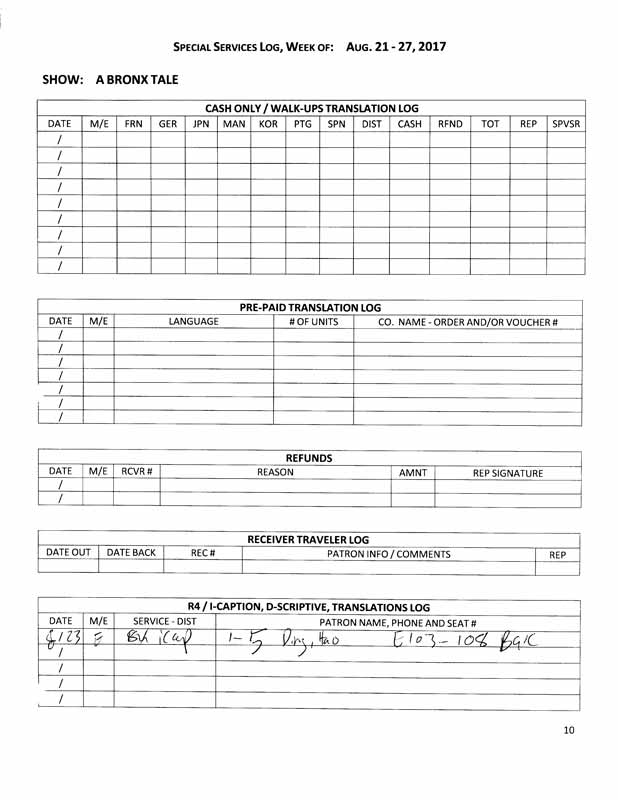 SPECIAL SERVICES LOG, WEEK OF: AUG. 21 - 27, 2017
SHOW: A BRONX TALE
CASH ONLY / WALK-UPS TRANSLATION LOG
DATE M/E FRN GER JPN MAN KOR PTG SPN DIST CASH RFND TOT REP SPVSR
/
/
/
/
/
/
/
/
/
PRE-PAID TRANSLATION LOG
DATE M/E LANGUAGE # OF UNITS CO. NAME - ORDER AND/OR VOUCHER #
/
/
/
/
/
/
/
REFUNDS
DATE M/E RCVR # REASON AMNT REP SIGNATURE
/
/
RECEIVER TRAVELER LOG
DATE OUT DATE BACK REC # PATRON INFO / COMMENTS REP
R4 / I-CAPTION, D-SCRIPTIVE, TRANSLATIONS LOG
DATE M/E SERVICE - DIST PATRON NAME, PHONE AND SEAT #
8/23 E iCap 1-5 Ding, Hao E103-108
/
/
/
10